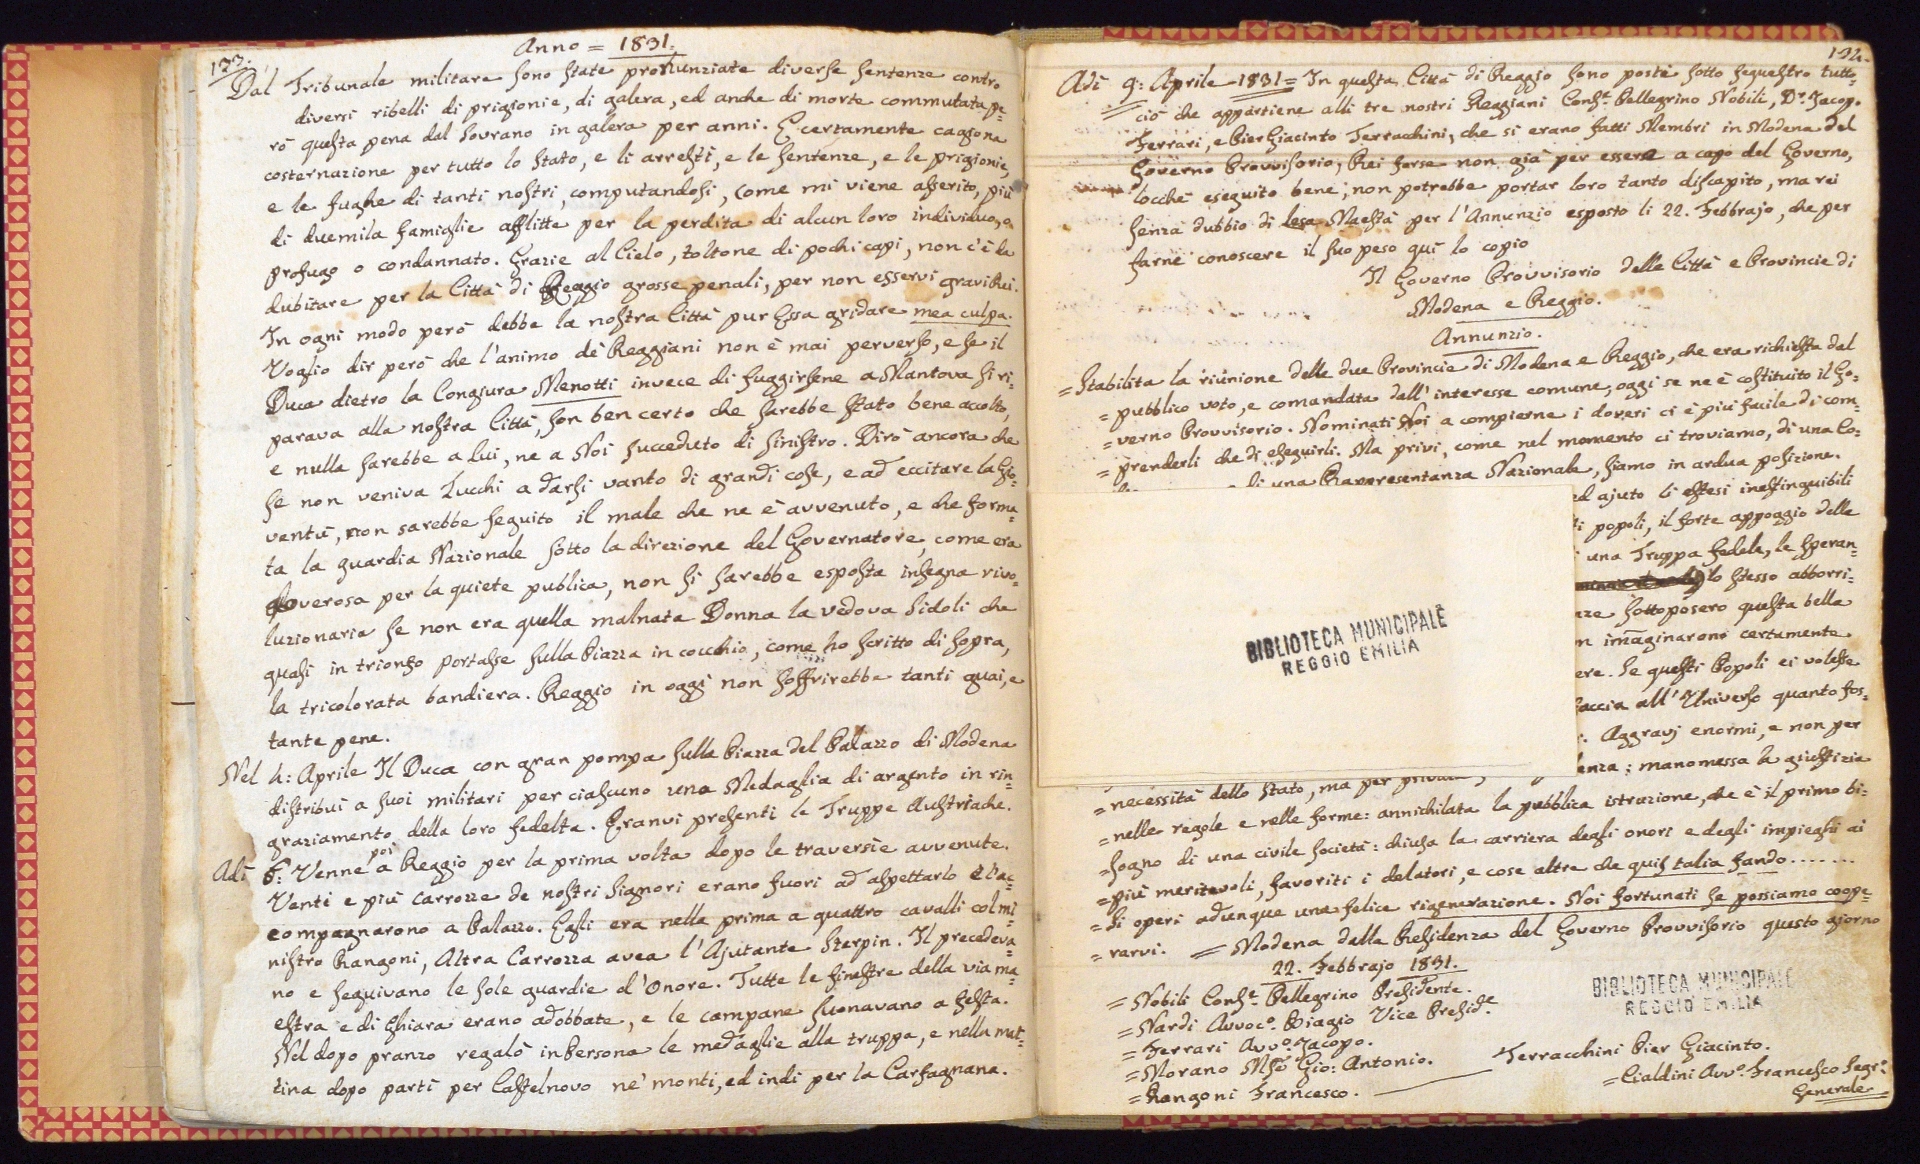 Anno = 1831.
133.
Dal Tribunale militare sono state pronunziate diverse sentenze contro
diversi ribelli di prigionie, di galera, ed anche di morte commutata pe=
rò questa pena dal Sovrano in galera per anni. E certamente cagiona
costernazione per tutto lo stato, e li arresti, e le sentenze, e le prigionie,
e le fughe di tanti nostri, computandosi, come mi viene asserito, più
di duemila famiglie afflitte per la perdita di alcun loro individuo, o
profugo o condannato. Grazie al Cielo, toltone di pochi capi, non c'è da
dubitare per la Città di Reggio grosse penali, per non esservi gravi Rei.
In ogni modo però debbe la nostra Città pur Essa gridare mea culpa.
Voglio dir però che l'animo de' Reggiani non è mai perverso, e se il
Duca dietro la Congiura Menotti invece di fuggirsene a Mantova si ri=
parava alla nostra Città, son ben certo che sarebbe stato bene accolto,
e nulla sarebbe a Lui, ne a Noi succeduto di sinistro. Dirò ancora che
se non veniva Zucchi a darsi vanto di grandi cose, e ad eccitare la Gio=
ventù, non sarebbe seguito il male che ne è avvenuto, e che forma=
ta la guardia Nazionale sotto la direzione del Governatore, come era
doverosa per la quiete publica, non si sarebbe esposta insegna rivo=
luzionaria se non era quella malnata Donna la vedova Sidoli che
quasi in trionfo portasse sulla Piazza in cocchio, come ho scritto di sopra,
la tricolorata bandiera. Reggio in oggi non soffrirebbe tanti guai, e
tante pene.
Nel 4: Aprile Il Duca con gran pompa sulla Piazza del Palazzo di Modena
distribuì a suoi militari per ciascuno una Medaglia di argento in rin=
graziamento della loro fedeltà. Eranvi presenti le Truppe Austriache.
Adi 6: Venne poi a Reggio per la prima volta dopo le traversie avvenute.
Venti e più Carrozze de nostri Signori erano fuori ad aspettarlo e l'ac=
compagnarono a Palazzo. Egli era nella prima a quattro cavalli col mi=
nistro Rangoni, Altra Carrozza avea l'Ajutante Sterpin. Il precedeva=
no e seguivano le sole guardie d'Onore. Tutte le finestre della via ma=
estra e di Ghiara erano adobbate, e le campane suonavano a festa.
Nel dopo pranzo regalò in Persona le medaglie alla truppa, e nella mat=
tina dopo partì per Castelnovo ne' monti, ed indi per la Garfagnana.
134.
Adi 9: Aprile 1831 = In questa Città di Reggio sono posti sotto sequestro tutto=
ciò che appartiene alli tre nostri Reggiani Cons.e Pellegrino Nobili, D.r Jacop.
Ferrari, e Pier Giacinto Terracchini, che si erano fatti Membri in Modena del
Governo Provvisorio, Rei forse non già per essere a capo del Governo,
locchè eseguito bene, non potrebbe portar loro tanto discapito, ma rei
senza dubbio di lesa Maestà per l'Annunzio esposto li 22. Febbrajo, che per
farne conoscere il suo peso quì lo copio
Il Governo Provvisorio delle Città e Provincie di
Modena e Reggio.
Annunzio.
= Stabilita la riunione delle due Provincie di Modena e Reggio, che era richiesta dal
= pubblico voto, e comandata dall'interesse comune, oggi se ne è costituito il Go=
= verno Provvisorio. Nominati Noi a compierne i doveri ci è più facile di com=
= prenderli che di eseguirli. Ma privi, come nel momento ci troviamo, di una Co=
di una Rappresentanza Nazionale, siamo in ardua posizione.
ed ajuto li stesi inestinguibili
ti popoli, il forte appoggio delle
una Truppa fedele, le speran=
lo stesso abborri=
nze sottoposero questa bella
n immaginarono certamente
ere. Se questi Popoli ei volesse
faccia all'Universo quanto fos=
Aggravj enormi, e non per
BIBLIOTECA MUNICIPALE
REGGIO EMILIA
enza; manomessa la giustizia
= necessità dello Stato, ma per private,
= nelle regole e nelle forme: annichilata la pubblica istruzione, che è il primo bi=
= sogno di una civile società: chiusa la carriera degli onori e degli impieghi ai
= più meritevoli, favoriti i delatori, e cose altre che quis talia fando.......
= Si operi adunque una felice rigenerazione. Noi fortunati se possiamo coope=
= rarvi. = Modena dalla Residenza del Governo Provvisorio questo giorno
22. Febbrajo 1831.
= Nobili Cons.e Pellegrino Presidente.
= Nardi Avvoc.o Biagio Vice Presid.e
= Ferrari Avv.o Jacopo.
= Morano M.se Gio: Antonio.
= Rangoni Francesco.
BIBLIOTECA MUNICIPALE
REGGIO EMILIA
Terracchini Pier Giacinto.
= Cialdini Avv.o Francesco Segr.o
Generale